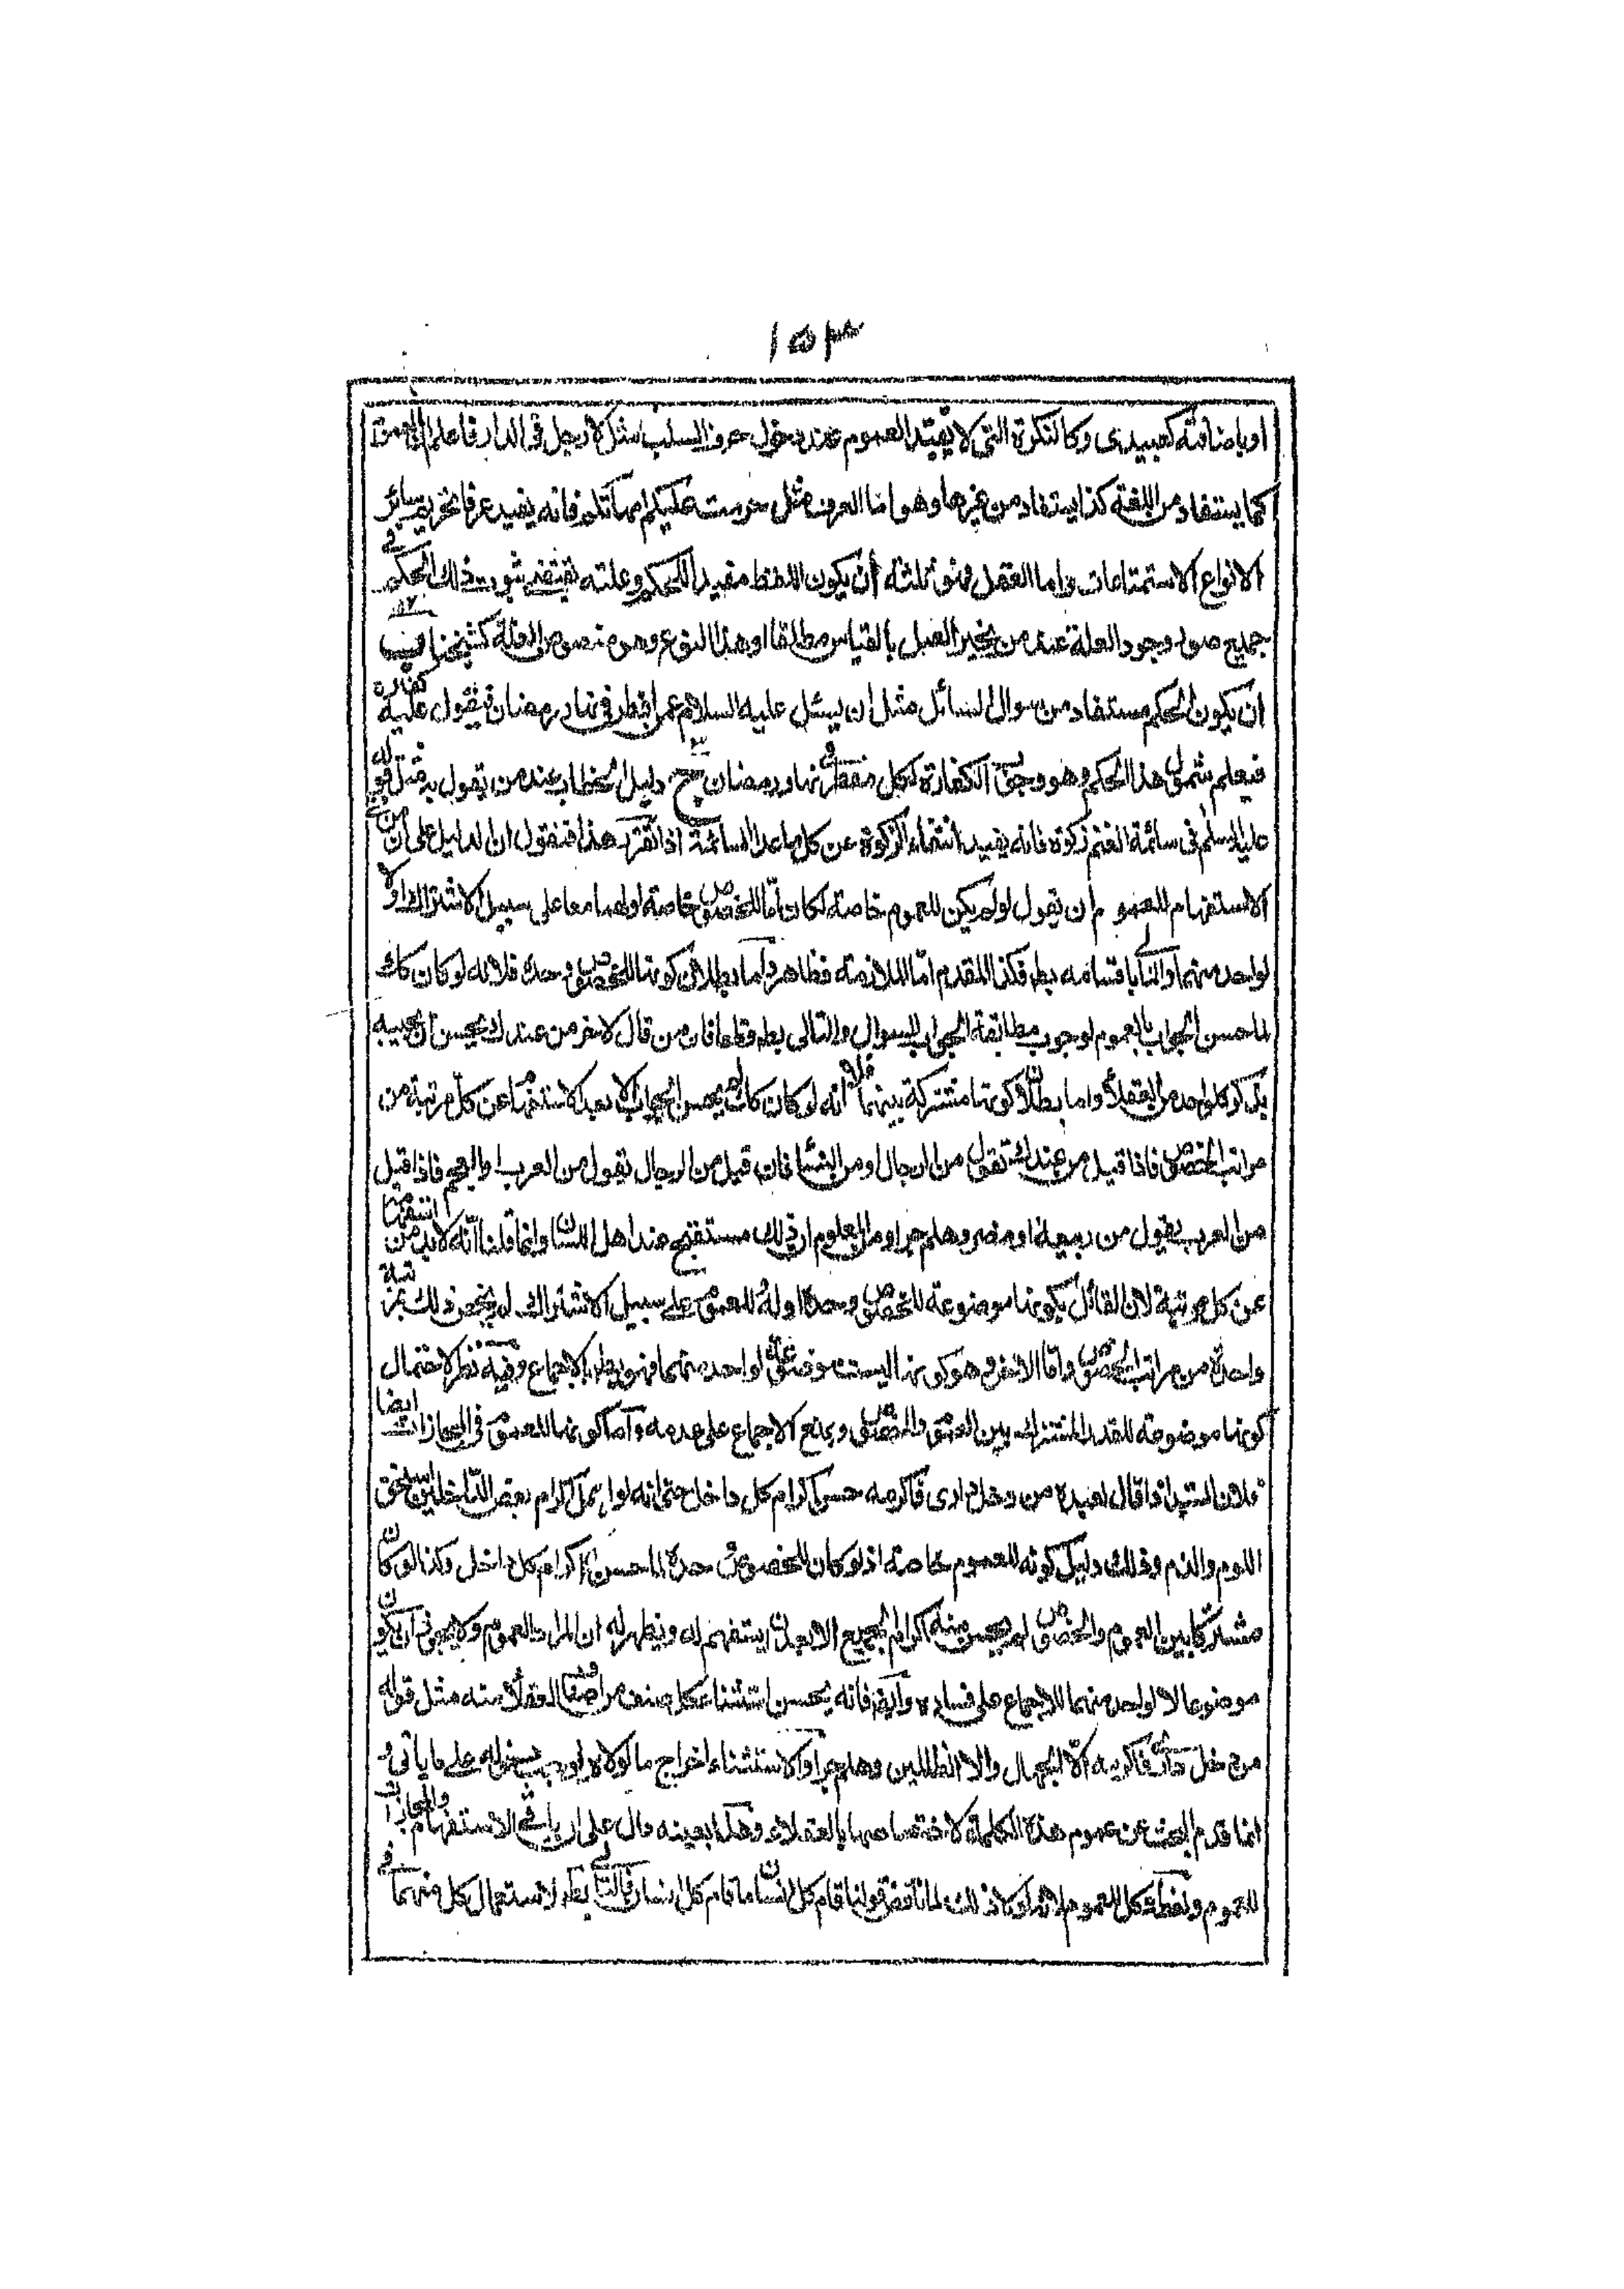 ١٥٣
او باضافته كعبيدى وكالنكرة التى لا يفيد العموم عند دخول حرف السلب مثل لا رجل فى الدار فاعلم ان العموم
كما يستفاد من اللغة كذا يستفاد من غيرها وهو اما العرف مثل حرمت عليكم امهاتكم فانه يفيد عرفا تحريم سائر
الانواع الاستمتاعات واما العقل فهو ثلثة أ ان يكون اللفظ مفيدا للحكم وعلته يقتضى ثبوت ذلك الحكم فى
جميع صور وجود العلة عند من يجيز العمل بالقياس مطلقا او هذا النوع وهو منصوص العلة كشيخنا ب
ان يكون الحكم مستفاد من سوال السائل مثل ان يسئل عليه السلام عمن افطر فى نهار رمضان فيقول عليه كفارة
فيعلم شمول هذا الحكم وهو وجوب الكفارة لكل مفطر فى نهار رمضان ج دليل الخطاب عند من يقول به مثل قوله
عليه السلم فى سائمة الغنم زكوة فانه يفيد انتفاء الزكوة عن كل ما عدا السائمة اذا تقرر هذا فنقول ان الدليل على ان من فى
الاستفهام للعموم ان تقول لو لم يكن للعموم خاصة لكان اما للخصوص خاصة او لهما معا على سبيل الاشتراك او لا
لواحد منهما والتالى باقسامه بط فكذا المقدم اما الملازمة فظاهر واما بطلان كونها للخصوص وحده فلانه لو كان كذلك
لما حسن الجواب بالعموم لوجوب مطابقة الجواب للسوال والتالى بط قطعا فان من قال لاخر من عندك يحسن ان يجيبه
بذكر كل واحد من العقلاء واما بطلان كونها مشتركة بينهما فلانه لو كان كذلك لم يحسن الجواب الا بعد الاستفهام عن كل مرتبة من
مراتب الخصوص فاذا قيل من عندك تقول من الرجال او من النساء فان قيل من الرجال يقول من العرب او العجم فاذا قيل
من العرب يقول من ربيعة او مضر وهلم جرا ومن المعلوم ان ذلك مستقبح عند اهل اللسان وانما قلنا انه لا بد من استفهام
عن كل مرتبة لان القائل بكونها موضوعة للخصوص وحده او له للعموم على سبيل الاشتراك لم يخص ذلك بمرتبة
واحدة من مراتب الخصوص واما الاخر وهو كونها ليست موضوعة لواحد منهما فهو بط بالاجماع وفيه نظر لاحتمال
كونها موضوعة للقدر المشترك بين العموم والخصوص ويمنع الاجماع على عدمه واما كونها للعموم فى المجازات ايضا
فلان السيد اذا قال لعبده من دخل دارى فاكرمه حسن اكرام كل داخل حتى انه لو اهمل اكرام بعض الداخلين استحق
اللوم والذم وذلك دليل كونه للعموم خاصة اذ لو كان للخصوص وحده لما حسن اكرام كل داخل وكذا لو كان
مشتركا بين العموم والخصوص لم يحسن منه اكرام الجميع الا بعد ان يستفهم له ويظهر له ان المراد العموم ولا يجوز ان يكون
موضوعا لا لواحد منهما للاجماع على فساده وايض فانه يحسن استثناء كل صنف من اصناف العقلاء منه مثل قوله
من دخل دارى فاكرمه الا الجهال والا الظالمين وهلم جرا والاستثناء اخراج ما لولاه لوجب دخوله على ما ياتى و
انما قدم البحث عن عموم هذه الكلمة لاختصاصها بالعقلاء وهذا بعينه دال على ان اى فى الاستفهام والمجازات
للعموم ولفظة كل للعموم لانه لولا ذلك لما ناقض قولنا قام كل انسان ما قام كل انسان والتالى بط لاستعمال كل منهما فى